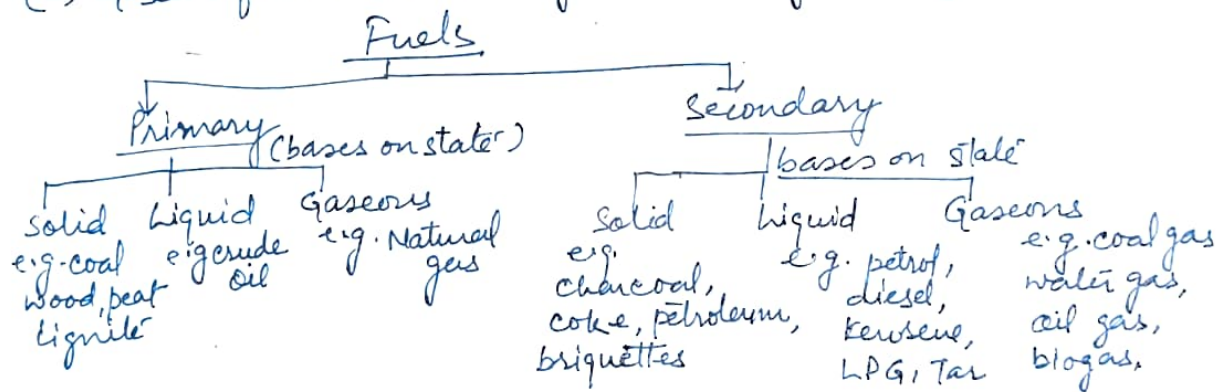 Fuels
Primary (bases on state)
Secondary
bases on state
Solid
e.g. coal
wood, peat
Lignite
Liquid
e.g crude
oil
Gaseous
e.g. Natural
gas
Solid
e.g.
charcoal,
coke, petroleum,
briquettes
Liquid
e.g. petrol,
diesel,
kerosene,
LPG, Tar
Gaseous
e.g. coal gas
water gas,
oil gas,
biogas,